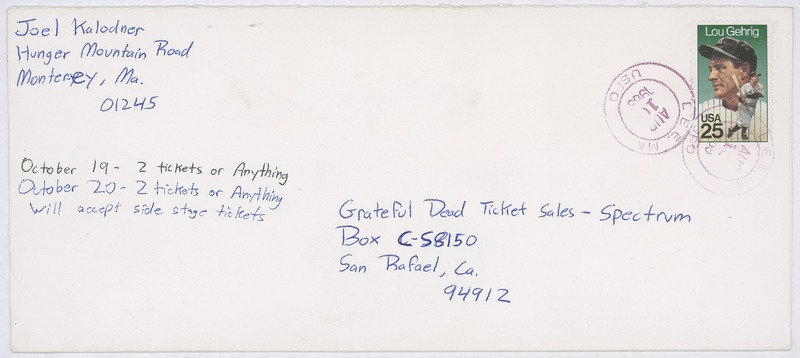 Joel Kalodner
Hunger Mountain Road
Monterey, Ma.
01245
Lou Gehrig
USA
25
USPO LEE, MA
AUG
1989
October 19 - 2 tickets or Anything
October 20 - 2 tickets or Anything
Will accept side stage tickets
Grateful Dead Ticket Sales - Spectrum
Box C-S8150
San Rafael, Ca.
94912